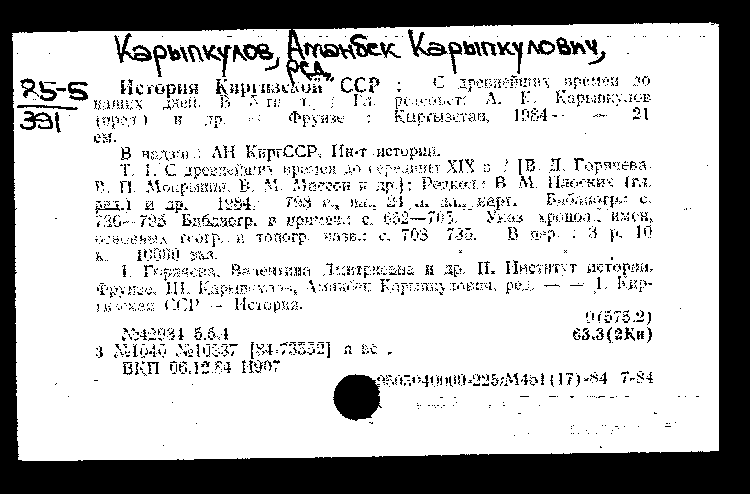 Карыпкулов, Аманбек Карыпкулович,
ред.
85-5
391
История Киргизской ССР : С древнейших времен до
наших дней. В 5-ти т. / Гл. редсовет: А. К. Карыпкулов
(пред.) и др. — Фрунзе : Киргызстан, 1984- — 21
см.
В надзаг.: АН КиргССР, Ин-т истории.
Т. 1. С древнейших времен до середины XIX в. / [В. Д. Горячева,
В. П. Мокрынин, В. М. Массон и др.]; Редкол.: В. М. Плоских (гл.
ред.) и др. 1984. 798 с., ил., 24 л. ил., карт. Библиогр.: с.
736—795 Библиогр. в примеч.: с. 652—705. Указ. хронол., имен,
основных геогр. и топогр. назв.: с. 706 735. В пер. : 3 р. 10
к. 10000 экз.
I. Горячева, Валентина Дмитриевна и др. II. Институт истории.
Фрунзе. III. Карыпкулов, Аманбек Карыпкулович, ред. — — 1. Кир-
гизская ССР — История.
9(575.2)
№42984 5.5.4 63.3(2Ки)
3 №1040 №10537 [84-73552] п во
ВКП 06.12.84 Н907
0505040000-225/М451(17)-84 7-84